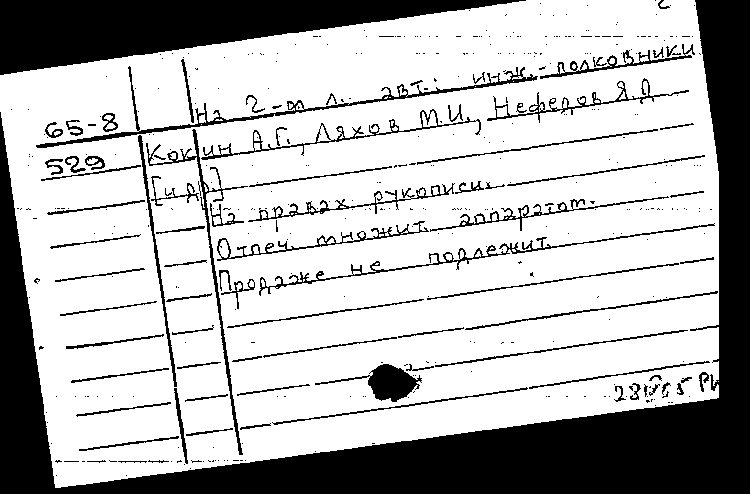 2
65-8 На 2-м л. авт.: инж.-полковники
529 Кокин А.Г., Ляхов М.И., Нефедов Я.Д
[и др.]
На правах рукописи.
Отпеч. множит. аппаратом.
Продаже не подлежит.